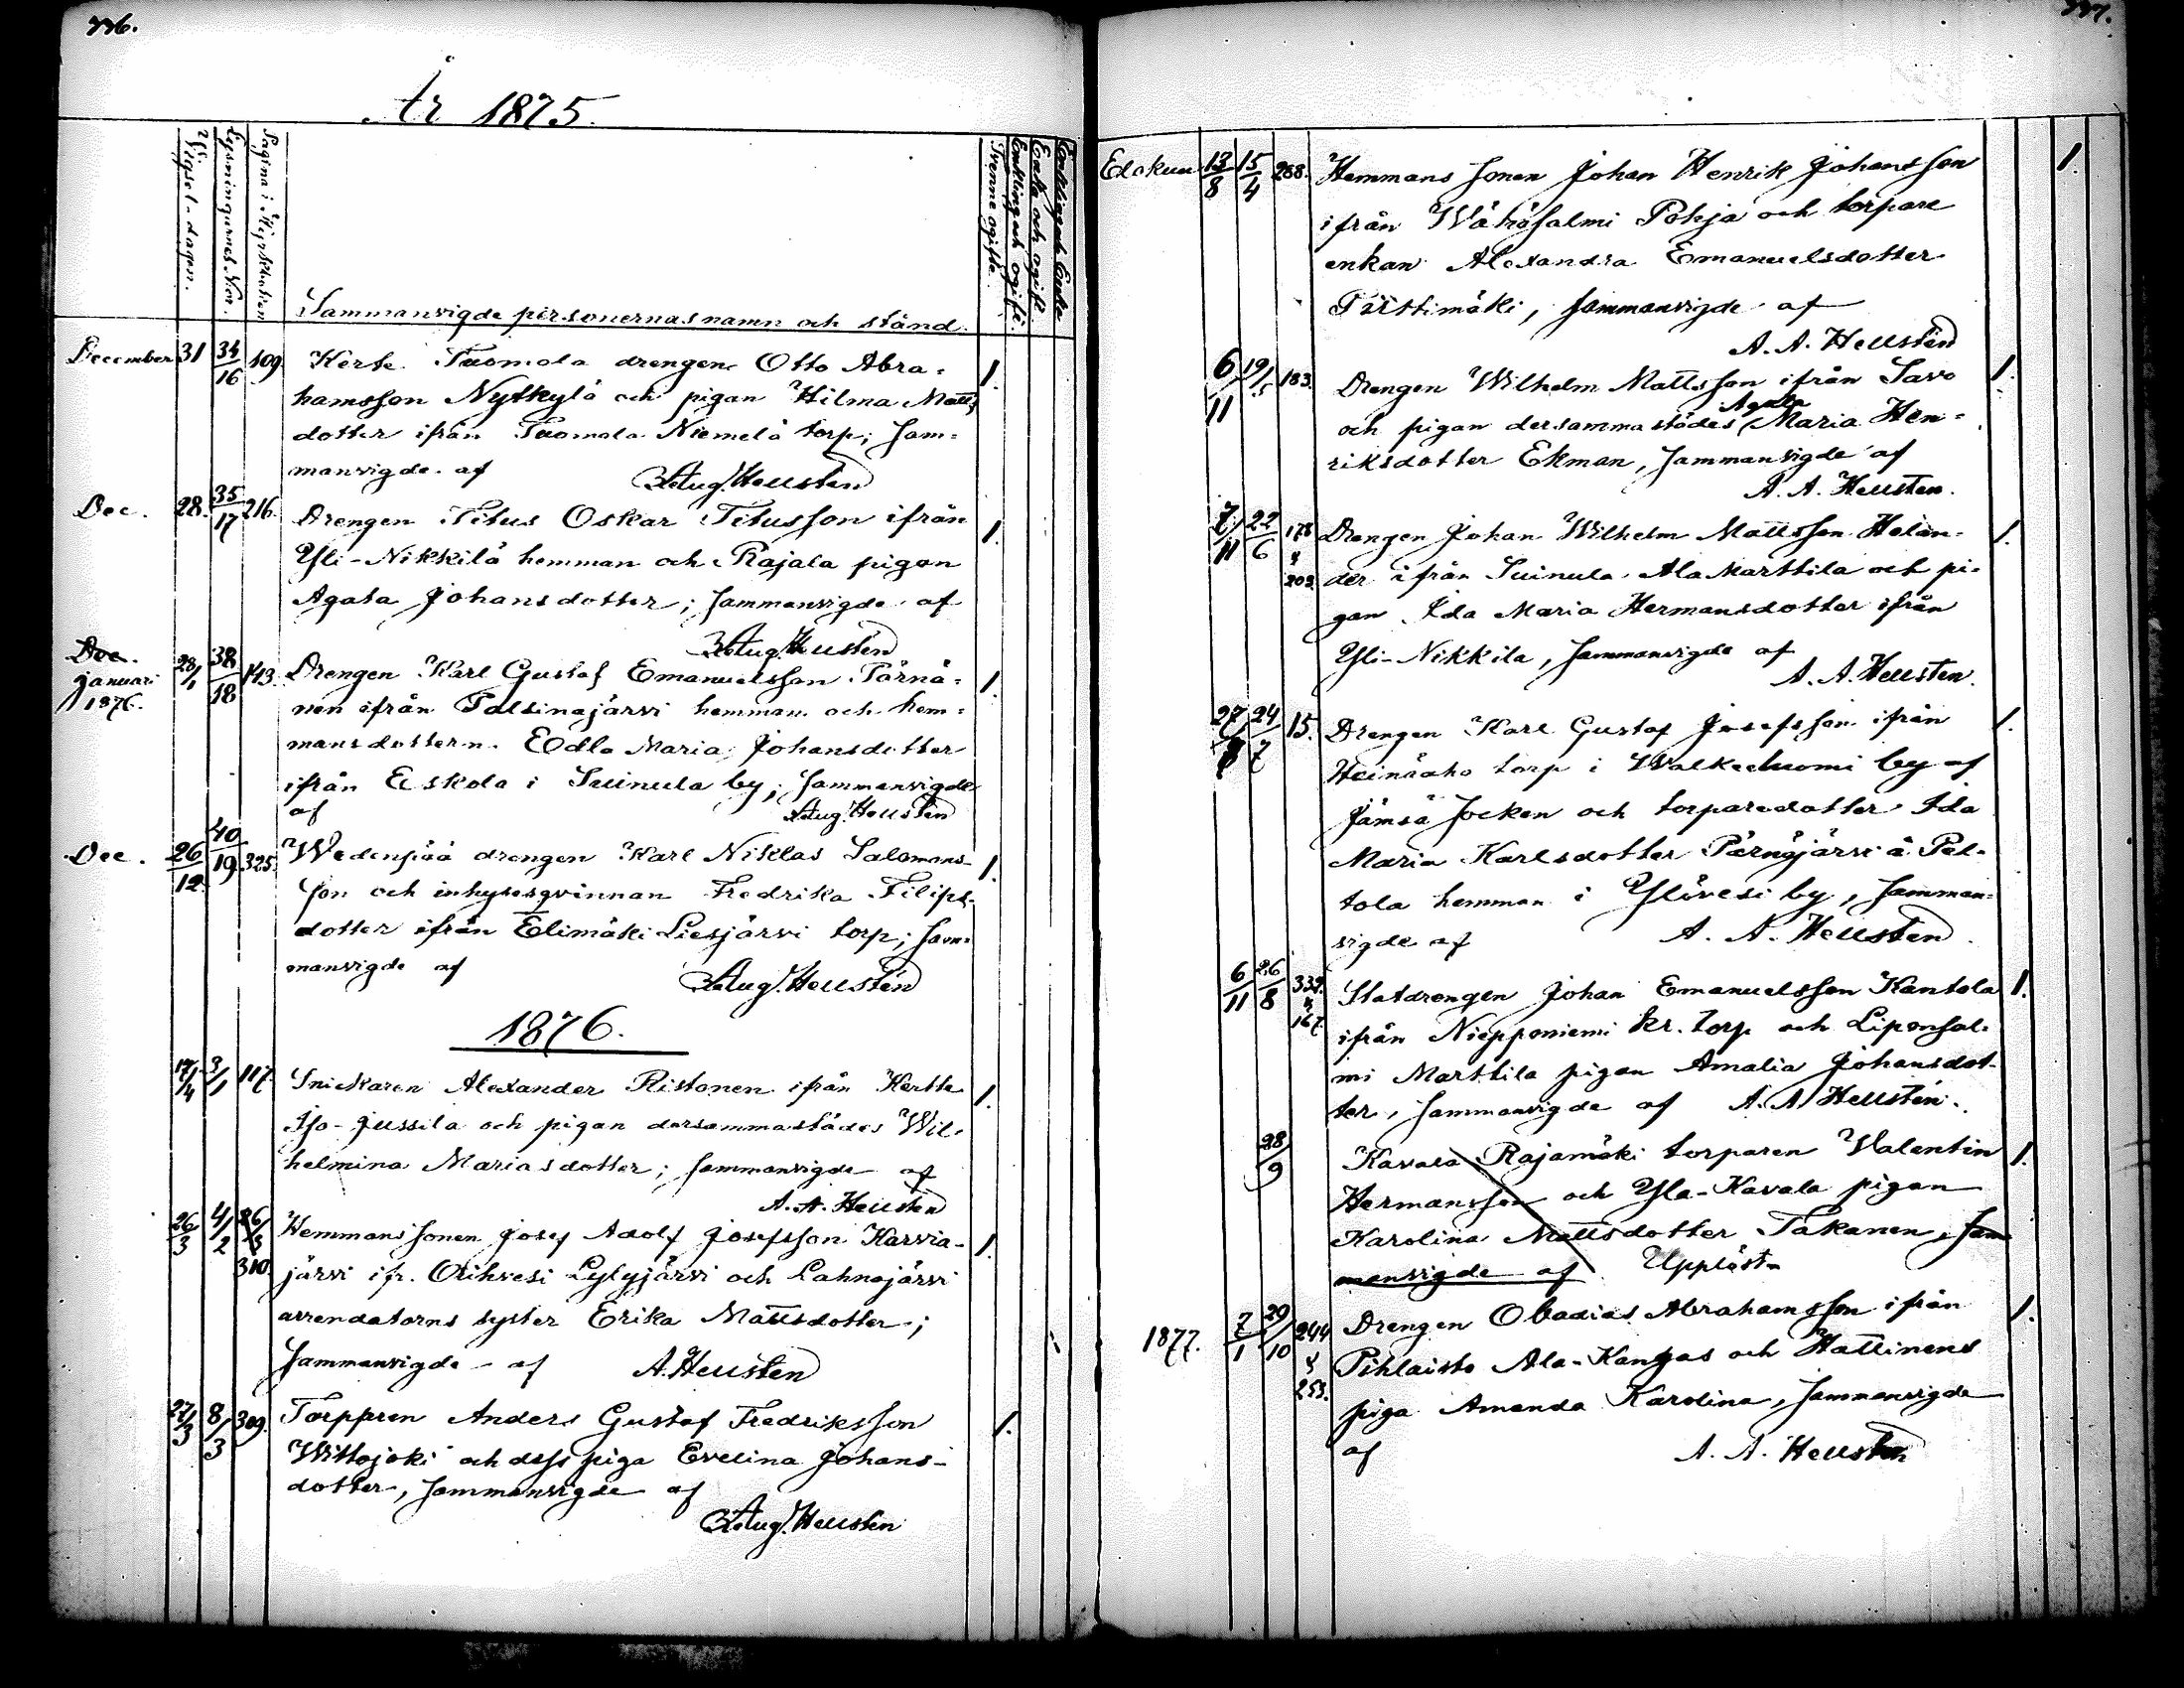 336.
År 1875.
Vigsel-dagen.
Lysningarnes N:ror.
Pagina i Skriftboken
Sammanvigde personernas namn och stånd.
Tvenne ogifte.
Enkling och ogift.
Enka och ogift.
Enkling och Enka
December 31 34/16 109. Kerte Tuomola drengen Otto Abra=
hamsson Nytkylä och pigan Hilma Matts
dotter ifrån Tuomola Niemelä torp; sam= 1.
manvigde af Aug. Hellsten
Dec. 28. 35/17 216. Drengen Titus Oskar Titusson ifrån 1.
Yli-Nikkilä hemman och Rajala pigan
Agata Johansdotter; sammanvigde af
Aug. Hellsten
Dec.
Januari 28/1 38/18 143. Drengen Karl Gustaf Emanuelsson Pärnä= 1.
1876.
nen ifrån Palsinajärvi hemman och hem=
mansdottern Edla Maria Johansdotter
ifrån Eskola i Suinula by; sammanvigde
af Aug. Hellsten
Dec. 26/12 40/19 325. Wedenpää drengen Karl Niklas Salomons- 1.
son och inhysesqvinnan Fredrika Filips-
dotter ifrån Elimäki Liesjärvi torp; sam=
manvigde af Aug. Hellsten
1876.
17/4 3/1 117. Snickaren Alexander Ristonen ifrån Kertte 1.
Iso-Jussila och pigan dersammastädes Wil-
helmina Mariasdotter; sammanvigde af
A. A. Hellsten
26/3 4/2 310 Hemmanssonen Josef Adolf Josefsson Karvia- 1.
järvi ifr. Orihvesi Lylyjärvi och Lahnajärvi
arrendatorns syster Erika Mattsdotter;
sammanvigde af A. Hellsten
27/3 8/3 309. Torpparen Anders Gustaf Fredriksson 1.
Wittajoki och dess piga Evelina Johans-
dotter, sammanvigde af
Aug. Hellsten
337.
Elokuu 13/8 15/4 288. Hemmans sonen Johan Henrik Johansson 1.
ifrån Wähäsalmi Pohja och torpare
enkan Alexandra Emanuelsdotter
Piittimäki, sammanvigde af
A. A. Hellsten
6/11 19/5 183. Drengen Wilhelm Mattsson ifrån Savo 1.
och pigan dersammastädes Agata Maria Hen=
riksdotter Ekman, sammanvigde af
A. A. Hellsten.
7/11 22/6 178 & 203. Drengen Johan Wilhelm Mattsson Helan- 1.
der ifrån Suinula Ala Marttila och pi-
gan Ida Maria Hermansdotter ifrån
Yli-Nikkila, sammanvigde af
A. A. Hellsten.
27/8 24/7 15. Drengen Karl Gustaf Josefsson ifrån 1.
Heinäaho torp i Walkealuomi by af
Jämsä socken och torparedotter Ida
Maria Karlsdotter Pärnäjärvi å Pal-
tola hemman i Ylövesi by, samman-
vigde af A. A. Hellsten.
6/11 26/8 339. & 167. Statdrengen Johan Emanuelsson Kantola 1.
ifrån Niepponiemi kr. torp och Liponsal-
mi Marttila pigan Amalia Johansdot-
ter, sammanvigde af A. A Hellsten.
28/9 Kavala Rajamäki torparen Valentin 1.
Hermansson och Yla-Kavala pigan
Karolina Mattsdotter Takanen, sam
manvigde af. Upplöst
1877. 7/1 29/10 244 & 253. Drengen Obadias Abrahamsson ifrån 1.
Pihlaisto Ala-Kangas och Hattinens
piga Amanda Karolina, sammanvigde
af A. A. Hellsten